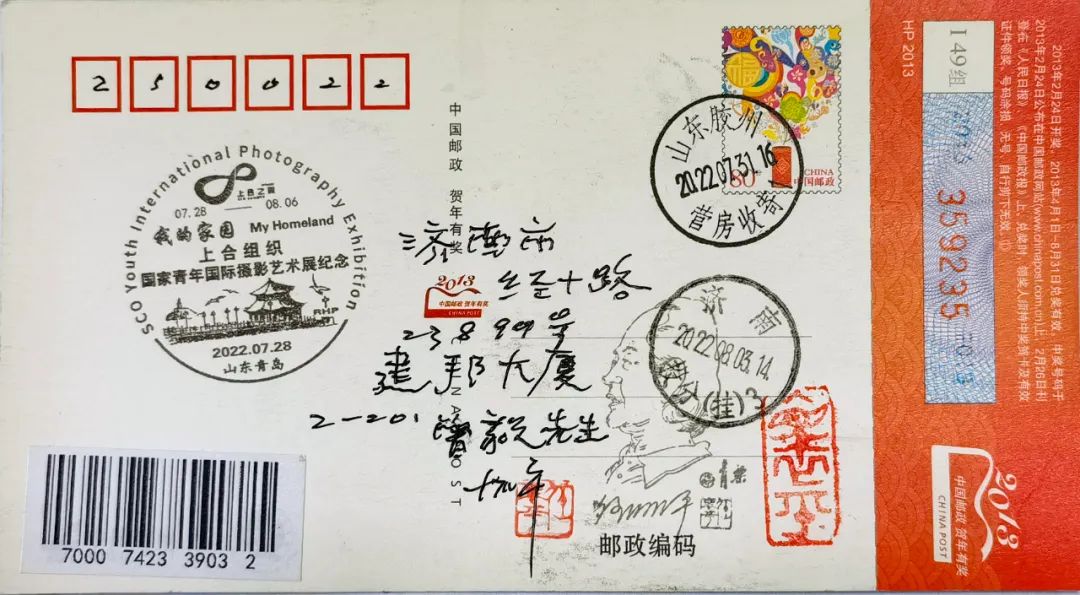 250022
中国邮政 贺年有奖
SCO Youth International Photography Exhibition
上合之夏
07.28 — 08.06
我的家园 My Homeland
上合组织
国家青年国际摄影艺术展纪念
RHP
2022.07.28
山东青岛
CHINA
中国邮政
80
山东胶州
2022.07.31.16
营房收寄1
济南市
2013
中国邮政 贺年有奖
CHINA POST
经十路
23899号
建邦大厦
2-201
先生
济南
2022.08.03.14
(挂)3
邮政编码
7000 7423 3903 2
HP 2013
2013年2月24日开奖，2013年4月1日-8月31日兑奖有效，中奖号码于
2013年2月24日公布在中国邮政网站(www.chinapost.com.cn)上，2月26日刊
登在《人民日报》、《中国邮政报》上，兑奖时，领奖人须持中奖贺卡及有效
证件领奖，号码涂损、无号、自行剪下无效。
149组
359235
2013
中国邮政 贺年有奖
CHINA POST